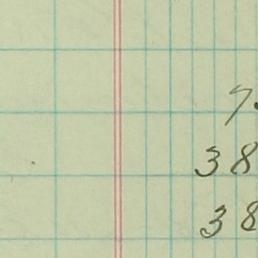 7
38
38